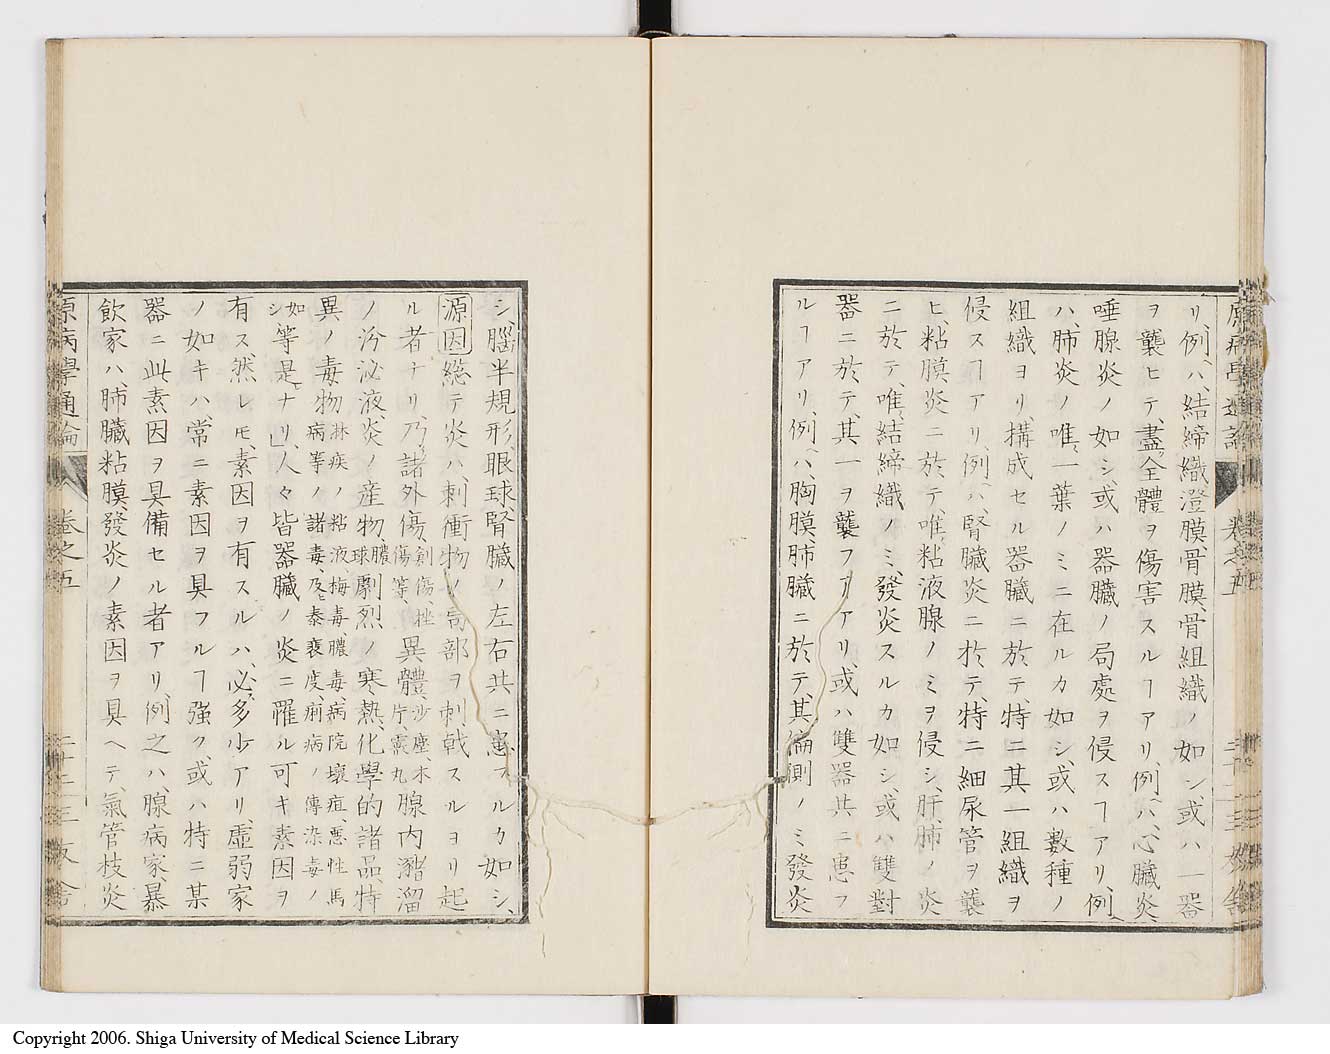 原病學通論 卷之五
リ、例ヘハ、結締織澄膜、骨膜、骨組織ノ如シ、或ハ一器
ヲ襲ヒテ、盡ク全體ヲ傷害スルヿアリ、例ヘハ、心臓炎、
唾腺炎ノ如シ、或ハ器臓ノ局處ヲ侵スヿアリ、例ヘ
ハ、肺炎ノ唯、一葉ノミニ在ルカ如シ、或ハ數種ノ
組織ヨリ、搆成セル器臓ニ於テ、特ニ其一組織ヲ
侵スヿアリ、例ヘハ、腎臓炎ニ於テ、特ニ細尿管ヲ襲
ヒ、粘膜炎ニ於テ、唯、粘液腺ノミヲ侵シ、肝、肺ノ炎
ニ於テ、唯、結締織ノミ、發炎スルカ如シ、或ハ雙對
器ニ於テ、其一ヲ襲フヿアリ、或ハ雙器共ニ患フ
ルヿアリ、例ヘハ、胸膜、肺臓ニ於テ、其偏側ノミ發炎
シ、腦半規形、眼球、腎臓ノ左右共ニ患フルカ如シ、
源因 總テ炎ハ、刺衝物ノ局部ヲ刺戟スルヨリ起
ル者ナリ、乃チ諸外傷、創傷、挫傷等 異體、沙塵、木片、霰丸 腺内瀦溜
ノ分泌液、炎ノ産物、膿球 劇烈ノ寒熱、化學的諸品、特
異ノ毒物 淋疾ノ粘液、梅毒、膿毒、病院壞疽、惡性馬病等ノ諸毒及泰衰度痢病ノ傳染毒ノ
如シ 等是ナリ」人々皆器臓ノ炎ニ罹ル可キ素因ヲ
有ス、然レ𪜈、素因ヲ有スルハ、必、多少アリ、虚弱家
ノ如キハ、常ニ素因ヲ具フルヿ強ク、或ハ特ニ某
器ニ此素因ヲ具備セル者アリ、例之ハ、腺病家、暴
飲家ハ、肺臓粘膜、發炎ノ素因ヲ具ヘテ、氣管枝炎
原病學通論 卷之五 二十三